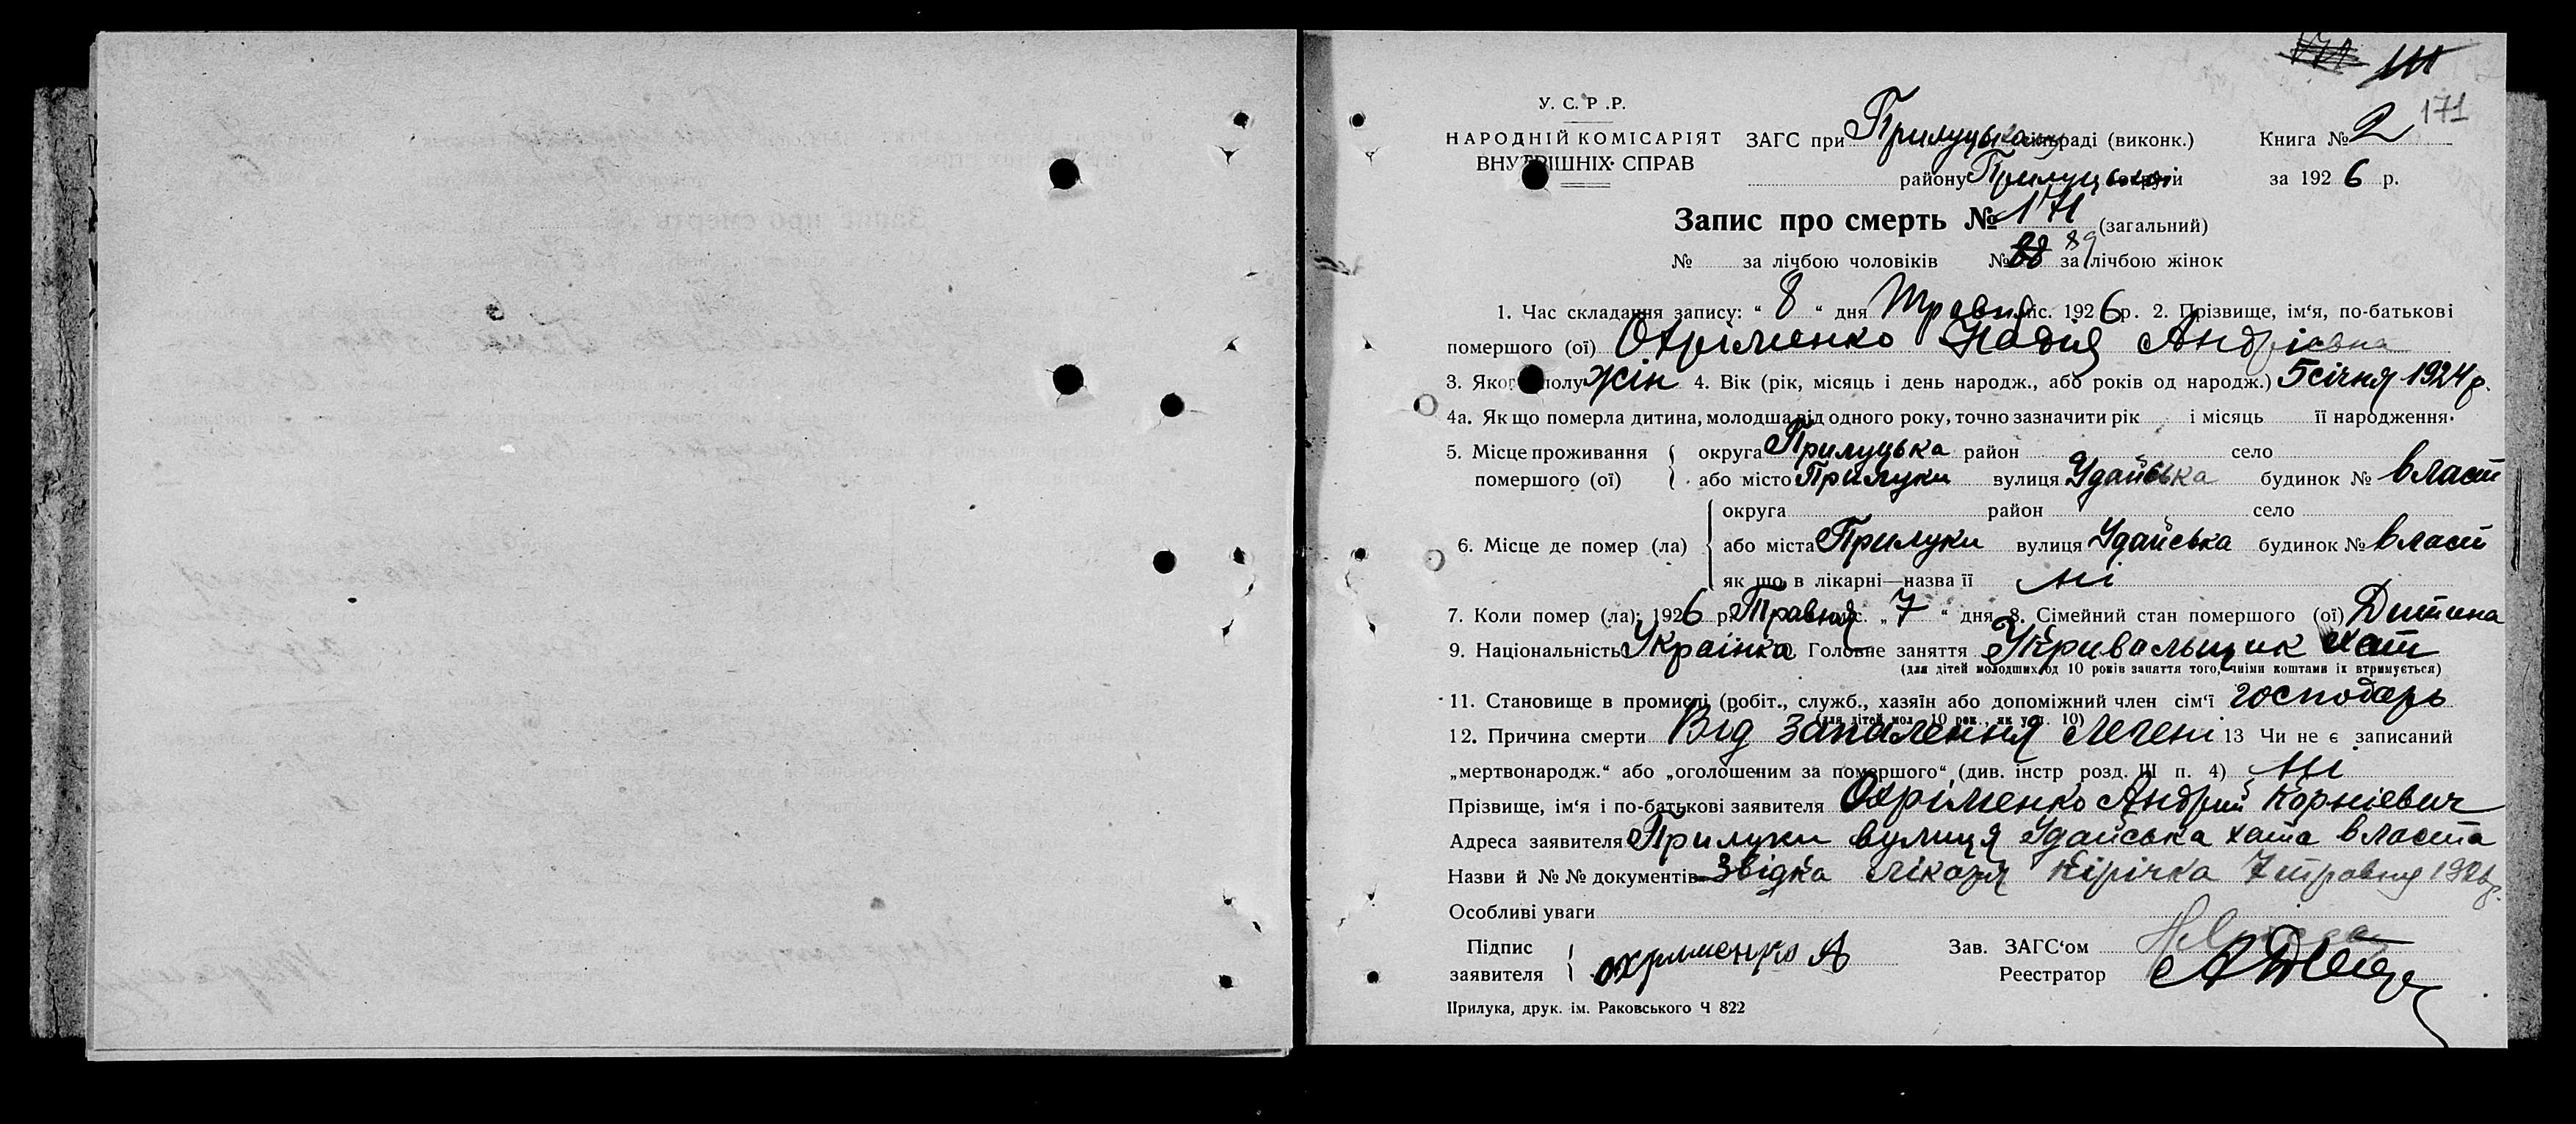 171
У. С. Р .Р.
НАРОДНІЙ КОМІСАРІЯТ
ВНУТРІШНІХ СПРАВ
ЗАГС при Прилуцькому сількраді (виконк.)
району Прилуцької округи
Книга № 2
за 1926 р.
Запис про смерть № 171 (загальний)
№ за лічбою чоловіків № 89 за лічбою жінок
1. Час складання запису: “ 8 “ дня Травня міс. 1926 р. 2. Прізвище, ім‘я, по-батькові
помершого (ої) Охріменко Надія Андрієвна
3. Якого полу жін 4. Вік (рік, місяць і день народж., або років од народж.) 5 січня 1924 р.
4а. Як що померла дитина, молодша від одного року, точно зазначити рік і місяць її народження.
5. Місце проживання помершого (ої) округа Прилуцька район село
або місто Прилуки вулиця Удайська будинок № власн
6. Місце де помер (ла) округа район село
або міста Прилуки вулиця Удайська будинок № власн
як що в лікарні—назва її ні
7. Коли помер (ла): 1926 р. Травня міс. „ 7 “ дня 8. Сімейний стан помершого (ої) Дитина
9. Національність Українка Головне заняття Укривальщик хат
(для дітей молодших од 10 років заняття того, чиїми коштами їх втримується)
11. Становище в промислі (робіт., служб., хазяїн або допоміжний член сім‘ї господарь
(для дітей мол. 10 рок., як у п. 10)
12. Причина смерти Від запалення легені 13 Чи не є записаний
„мертвонародж.“ або „оголошеним за помершого“ (див. інстр розд. III п. 4) ні
Прізвище, ім‘я і по-батькові заявителя Охріменко Андрій Корнієвич
Адреса заявителя Прилуки вулиця Удайська хата власна
Назви й №№ документів Звідка лікаря Кірічка 7 травня 1926 р.
Особливі уваги
Підпис заявителя охрименко А
Зав. ЗАГС‘ом
Реестратор
Прилука, друк. ім. Раковського Ч 822